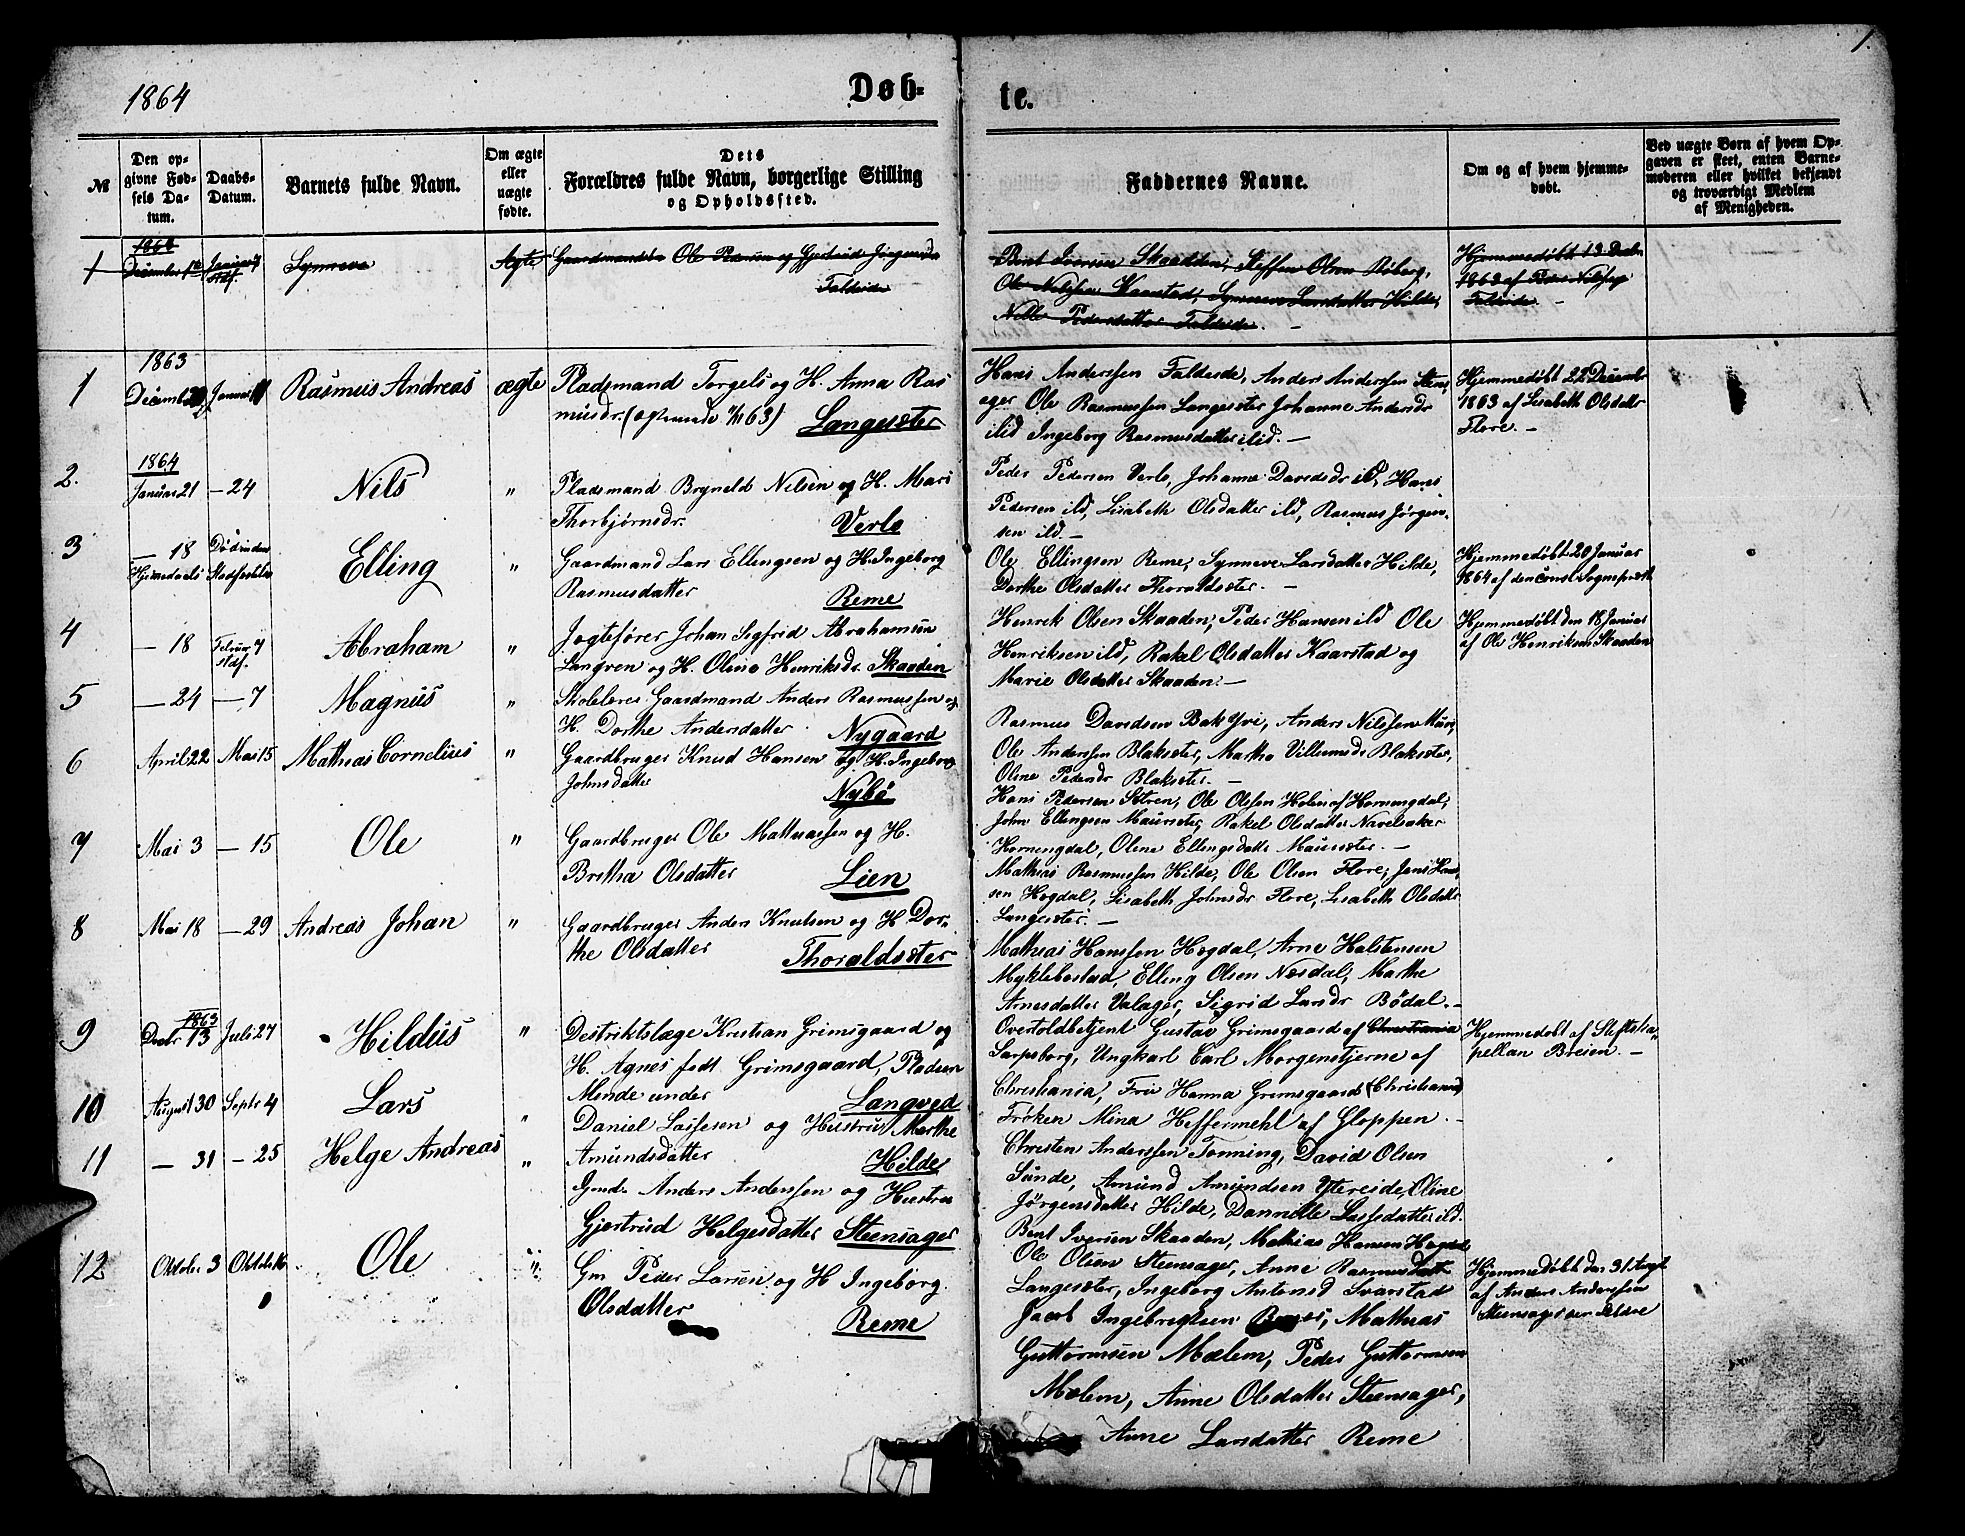 1864
Døb-
te.
1.
№
Den op-
givne Fød-
sels Da-
tum.
Daabs-
Datum.
Barnets fulde Navn.
Om ægte
eller
uægte
fødte.
Dets
Forældres fulde Navn, borgerlige Stilling
og Opholdssted.
Faddernes Navne.
Om og af hvem hjemme-
døbt.
Ved uægte Børn af hvem Op-
gaven er skeet, enten Barne-
moderen eller hvilket bekjendt
og troværdigt Medlem
af Menigheden.
1
December
Synneve
Ægte
Ole og Gjertrud
Faleide
Bent Iversen Skaaden, Steffen Olsen
Ole Nilssen Kaarstad, Synneve Larsdatter Hilde,
Nille Pedersdatter Faleide. -
Hjemmedøbt 13 Decbr
1863 af
Faleide. -
1
1863
Januar
Rasmus Andreas
ægte
Pladsmand Torgels og H. Anna Ras
musdr. Langesæter
Hans Anderssen Faleide, Anders Anderssen Steens
ager Ole Rasmussen Langesæter Johanne Andersdr
ilid Ingeborg Rasmusdatter ilid. -
Hjemmedøbt 22 Decembr
1863 af Lisabeth Olsdatr
Flore. -
2.
1864
Januar 21
- 24
Nils
"
Pladsmand Bryneld Nilsen og H. Mari
Thorbjørnsdr. Verlo
Peder Pedersen Verlo, Johanne Davidsdr ild, Hans
Pedersen ild, Lisabeth Olsdatter ild, Rasmus Jørgen-
sen ild. -
3
- 18
Elling
"
Gaardmand Lars Ellingsen og H. Ingeborg
Rasmusdatter Reme
Ole Ellingsen Reme, Synneve Larsdatter Hilde,
Dorthe Olsdatter Thoraldsæter. -
Hjemmedøbt 20 Januar
1864 af den const. Sognepræst
4
- 18
Februar 7
Abraham
"
Jogtefører Johan Sigfrid Abrahamsen
Langren og H. Oline Henriksdr. Skaaden
Henrik Olsen Skaaden, Peder Hansen ild Ole
Henriksen ild, Rakel Olsdatter Kaarstad og
Marie Olsdatter Skaaden. -
Hjemmedøbt den 18 Januar
af Ole Henriksen Skaaden
5
- 24
- 7
Magnus
"
Gaardmand Anders Rasmussen og
H. Dorthe Andersdatter Nygaard
Rasmus Davidsen Bak Yri, Anders Nilssen Muri,
Ole Anderssen Blaksæter, Martha Villumsdr Blaksæter,
Oline Pedersdr Blaksæter. -
6
April 22
Mai 15
Mathias Cornelius
"
Gaardbruger Knud Hansen og H. Ingeborg
Johnsdatter Nybø
Hans Pedersen Sætren, Ole Olssen Holen af Hornengdal,
John Ellingsen Maursæter, Rakel Olsdatter Navelsaker
Hornengdal, Oline Ellingsdatter Maursæter. -
7
Mai 3
- 15
Ole
"
Gaardbruger Ole Mathiassen og H.
Bretha Olsdatter Lien
Mathias Rasmussen Hilde, Ole Olsen Flore, Jens Han-
sen Hogdal, Lisabeth Johnsdr Flore, Lisabeth Olsdatter
Langesæter. -
8
Mai 18
- 29
Andreas Johan
"
Gaardbruger Anders Knutsen og H Dor-
the Olsdatter Thoraldsæter
Mathias Hanssen Hogdal, Arne Halstensen
Myklebostad, Elling Olsen Nosdal, Marthe
Arnesdatter Valager, Sigrid Larsdr Bødal. -
9
1863
Decbr 13
Juli 27
Hildus
"
Destriktslæge Kristian Grimsgaard og
H. Agnes født Grimsgaard, Pladsen
Mende under Langved
Overtoldbetjent Gustav Grimsgaard af Christiania
Sarpsborg, Ungkarl Carl Morgenstjerne af
Christiania, Fru Hanna Grimsgaard (Christiania)
Frøken Mina Heffermehl af Gloppen. -
Hjemmedøbt af Stiftska-
pellan Breien. -
10
August 30
Septr 4
Lars
"
Daniel Lassesen og Hustru Marthe
Amundsdatter Hilde
Christen Anderssen Tonning, David Olsen
Sunde, Amund Amundsen Ytreeide, Oline
Jørgensdatter Hilde, Dannille Lassesdatter ild.
11
- 31
- 25
Helge Andreas
"
Gmd. Anders Anderssen og Hustru
Gjertrud Helgesdatter Steensager
Bent Iversen Skaaden, Mathias Hansen Hogdal
Ole Olsen Steensager, Anne Rasmusdatter
Langesæter, Ingeborg Antonsd Svarstad
Hjemmedøbt den 31 August
af Anders Anderssen
Steensager
12
Oktober 3
Ole
"
Gm Peder Larsen og H Ingeborg
Olsdatter Reme
Jacob Ingebregtsen Mathias
Guttormsen Mælem, Peder Guttormsen
Mælem, Anne Olsdatter Steensager,
Anne Larsdatter Reme